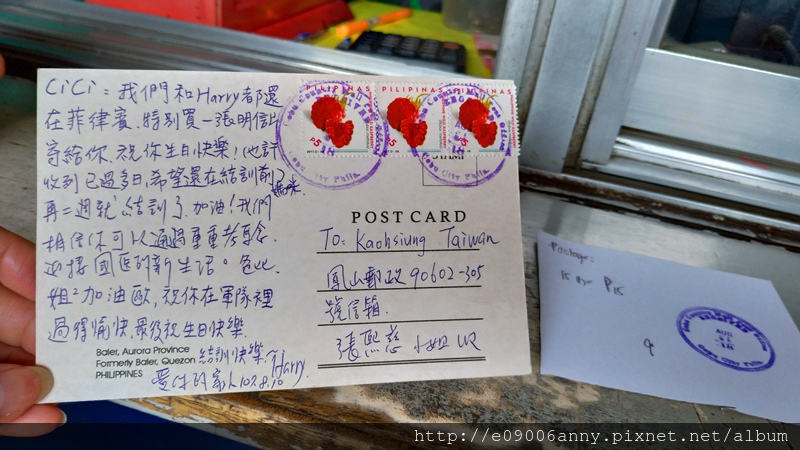 CiCi：我們和Harry都還
在菲律賓，特別買一張明信片
寄給你，祝你生日快樂！(也許
收到已過多日，希望還在結訓前)
再二週就結訓了，加油！我們
相信你可以通過重重考驗
迎接國區的新生活。
姐²加油歐，祝你在軍隊裡
過得愉快，最後祝生日快樂，
結訓快樂 Harry
愛你的家人107.8.
Baler, Aurora Province
Formerly Baler, Quezon
PHILIPPINES
PILIPINAS
PILIPINAS
PILIPINAS
P5
P5
P5
POST CARD
To: Kaohsiung Taiwan
鳳山郵政90602-305
號信箱
張熙慈 小姐收
Package:
P15
9
http://e09006anny.pixnet.net/album